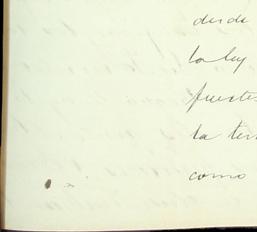 desde
la ley
fuertes
la ter
como